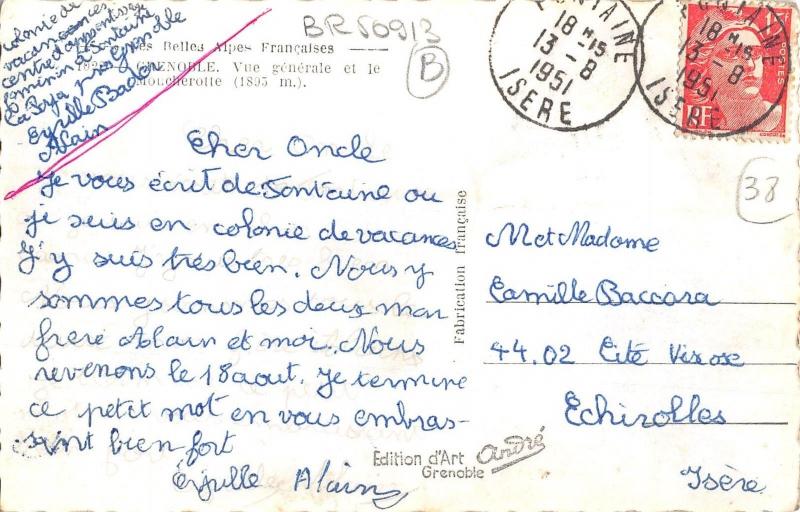 colonie de
vacances
centre d'apprentissage
féminin Fontaine
La Poya près Grenoble
Alain
Les Belles Alpes Françaises
GRENOBLE. Vue générale et le
Moucherotte (1895 m.).
BR50913
B
FONTAINE
18 H 15
13 - 8
1951
ISERE
FONTAINE
18 H 15
13 - 8
1951
ISERE
POSTES
RF
38
Cher Oncle
Je vous écrit de Fontaine ou
je suis en colonie de vacances
J'y suis très bien. Nous y
sommes tous les deux mon
frère Alain et moi. Nous
revenons le 18 aout. Je termine
ce petit mot en vous embras-
sant bien fort
Alain
Fabrication française
Edition d'Art André
Grenoble
M et Madame
Camille Baccara
44.02 Cité Viscose
Echirolles
Isère